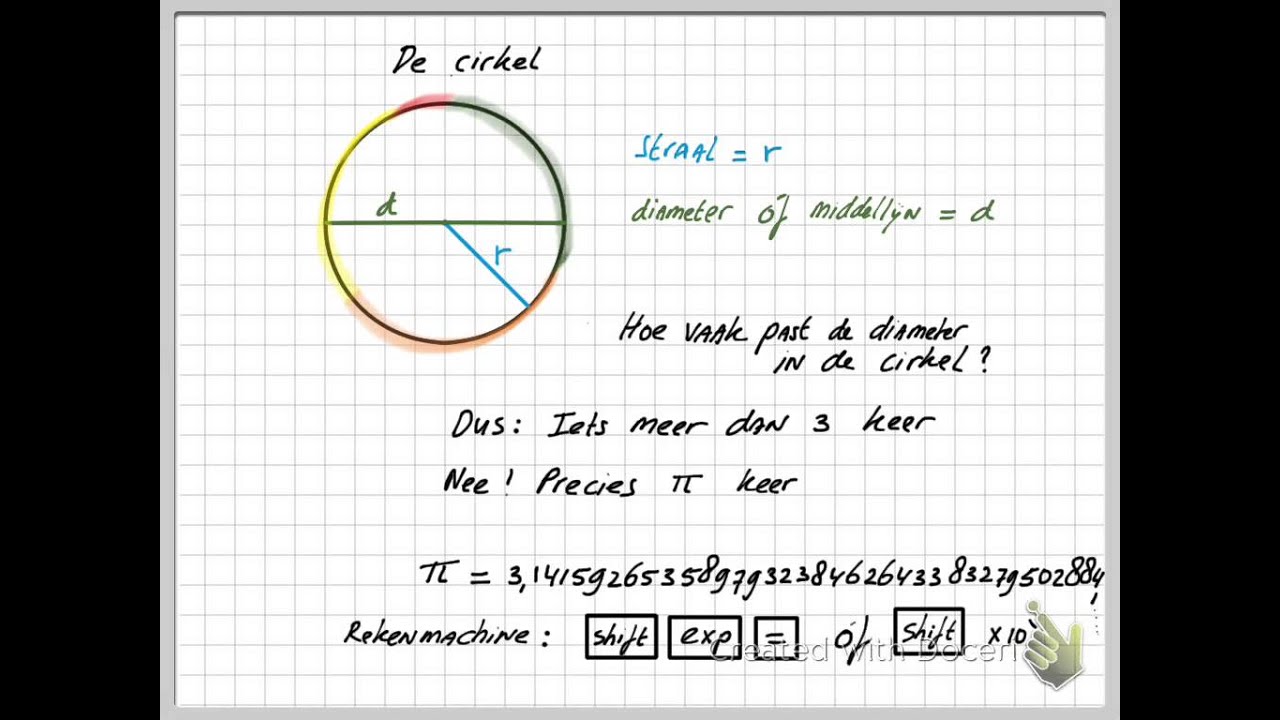 De cirkel
d
straal = r
diameter of middellijn = d
r
Hoe vaak past de diameter
in de cirkel?
Dus: Iets meer dan 3 keer
Nee! Precies π keer
π = 3,141592653589793238462643383279502884
Rekenmachine: shift exp = of shift x10
Created with Doceri